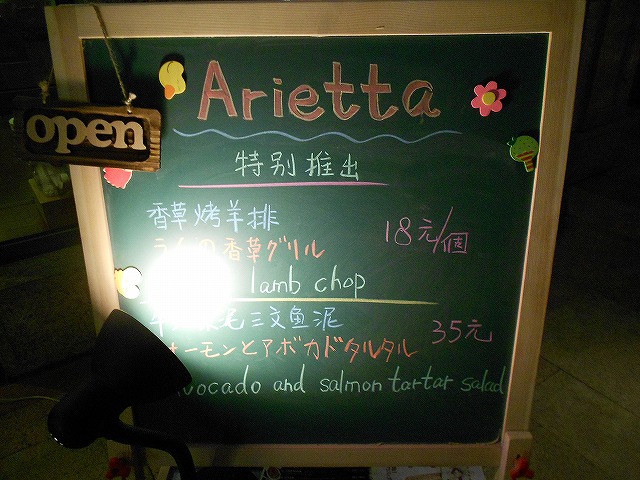 Arietta
open
特别推出
香草烤羊排
香草グリル
18元/個
lamb chop
三文鱼泥
35元
ーモンとアボカドタルタル
and salmon tartar salad